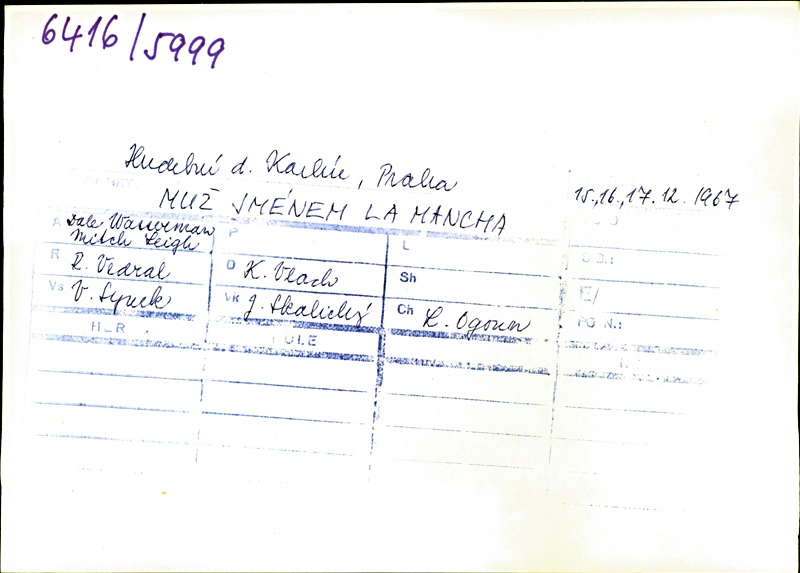 6416/5999
Hudební d. Karlín, Praha
15.,16.,17.12. 1967
MUŽ JMÉNEM LA MANCHA
A Dale Wasserman
Mitch Leigh
P
L
R R. Vedral
D K. Vlach
Sh
E/
Vs V. Synek
Vk J. Skalický
Ch L. Ogoun
HER
OLE